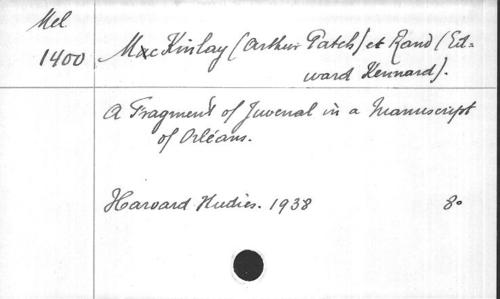 Mel
1400
MacKinlay (Arthur Patch) et Rand (Ed-
ward Kennard).
A Fragment of Juvenal in a Manuscript
of Orléans.
Harvard Studies. 1938 8o